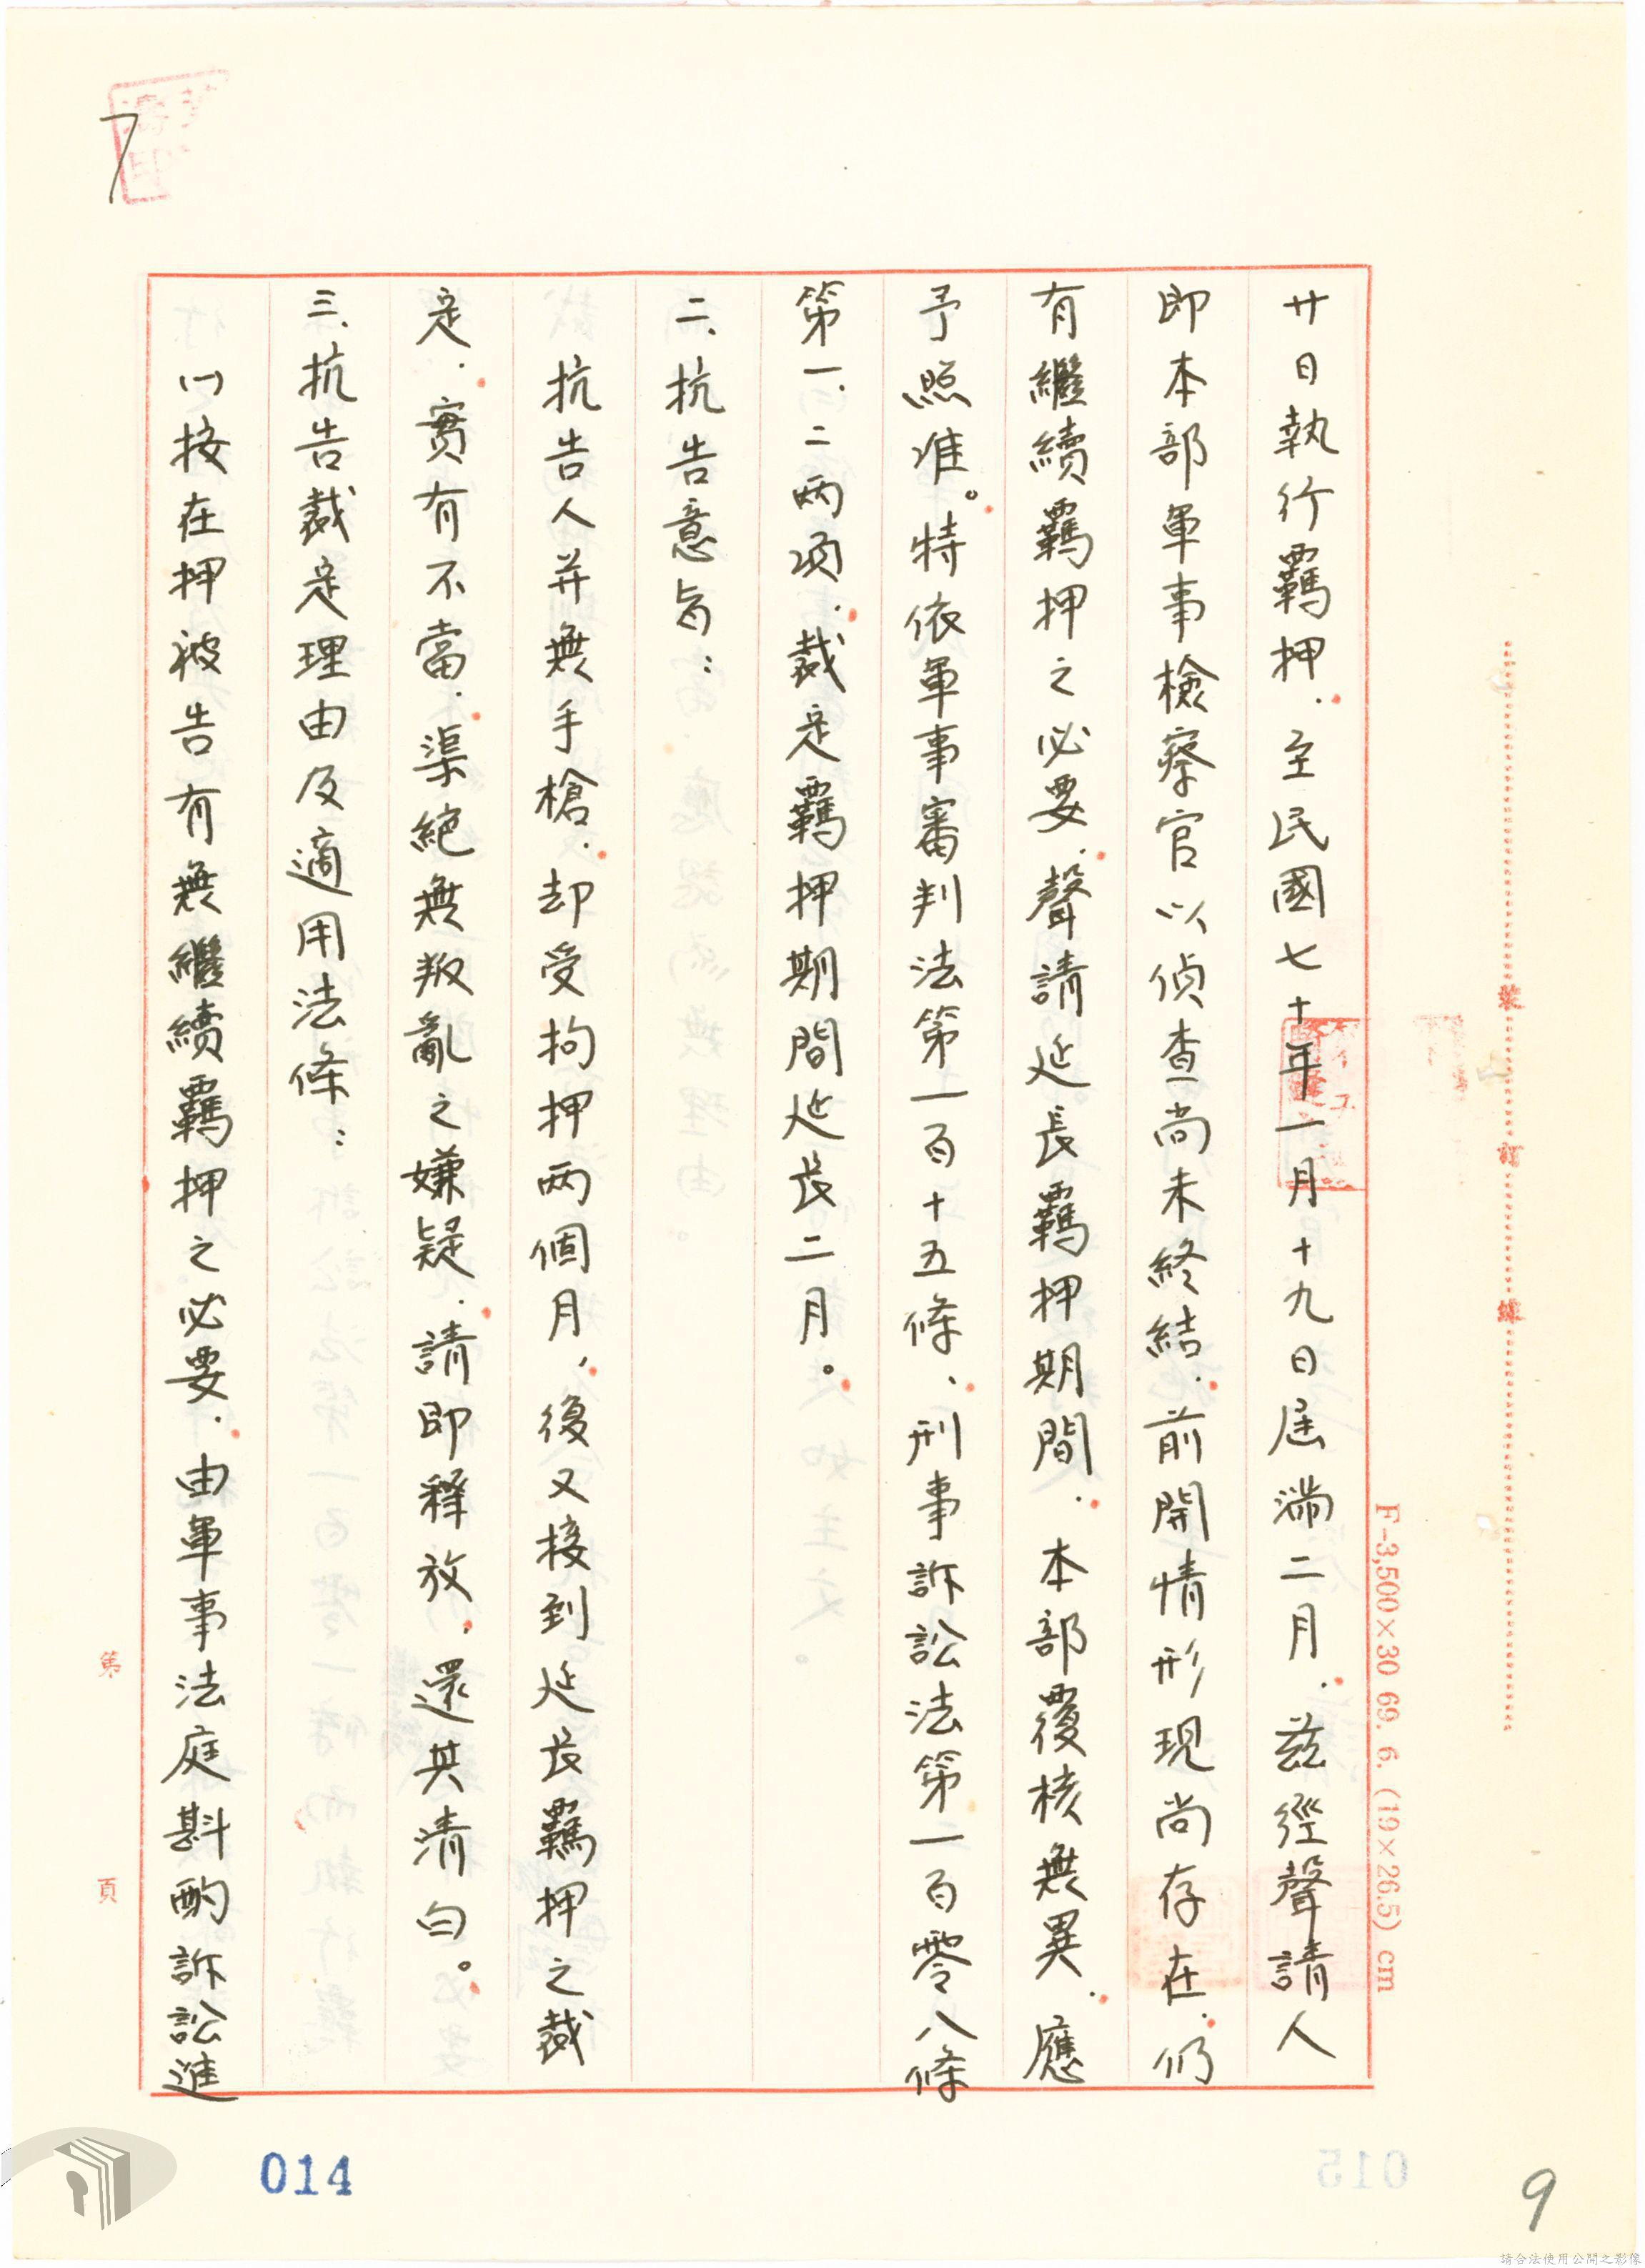 廿日執行羈押．至民國七十年一月十九日屆滿二月．茲經聲請人
即本部軍事檢察官以偵查尚未終結．前開情形現尚存在．仍
有繼續羈押之必要．聲請延長羈押期間．本部覆核無異．應
予照准。特依軍事審判法第一百十五條、刑事訴訟法第一百零八條
第一、二兩項．裁定羈押期間延長二月。
二、抗告意旨：
抗告人并無手槍．却受拘押兩個月，後又接到延長羈押之裁
定．實有不當．渠絕無叛亂之嫌疑．請即釋放．還其清白。
三、抗告裁定理由及適用法條：
㈠按在押被告有無繼續羈押之必要．由軍事法庭斟酌訴訟進
裝
訂
線
F-3,500×30 69. 6. (19×26.5) cm
第 頁
7
014
015
9
請合法使用公開之影像